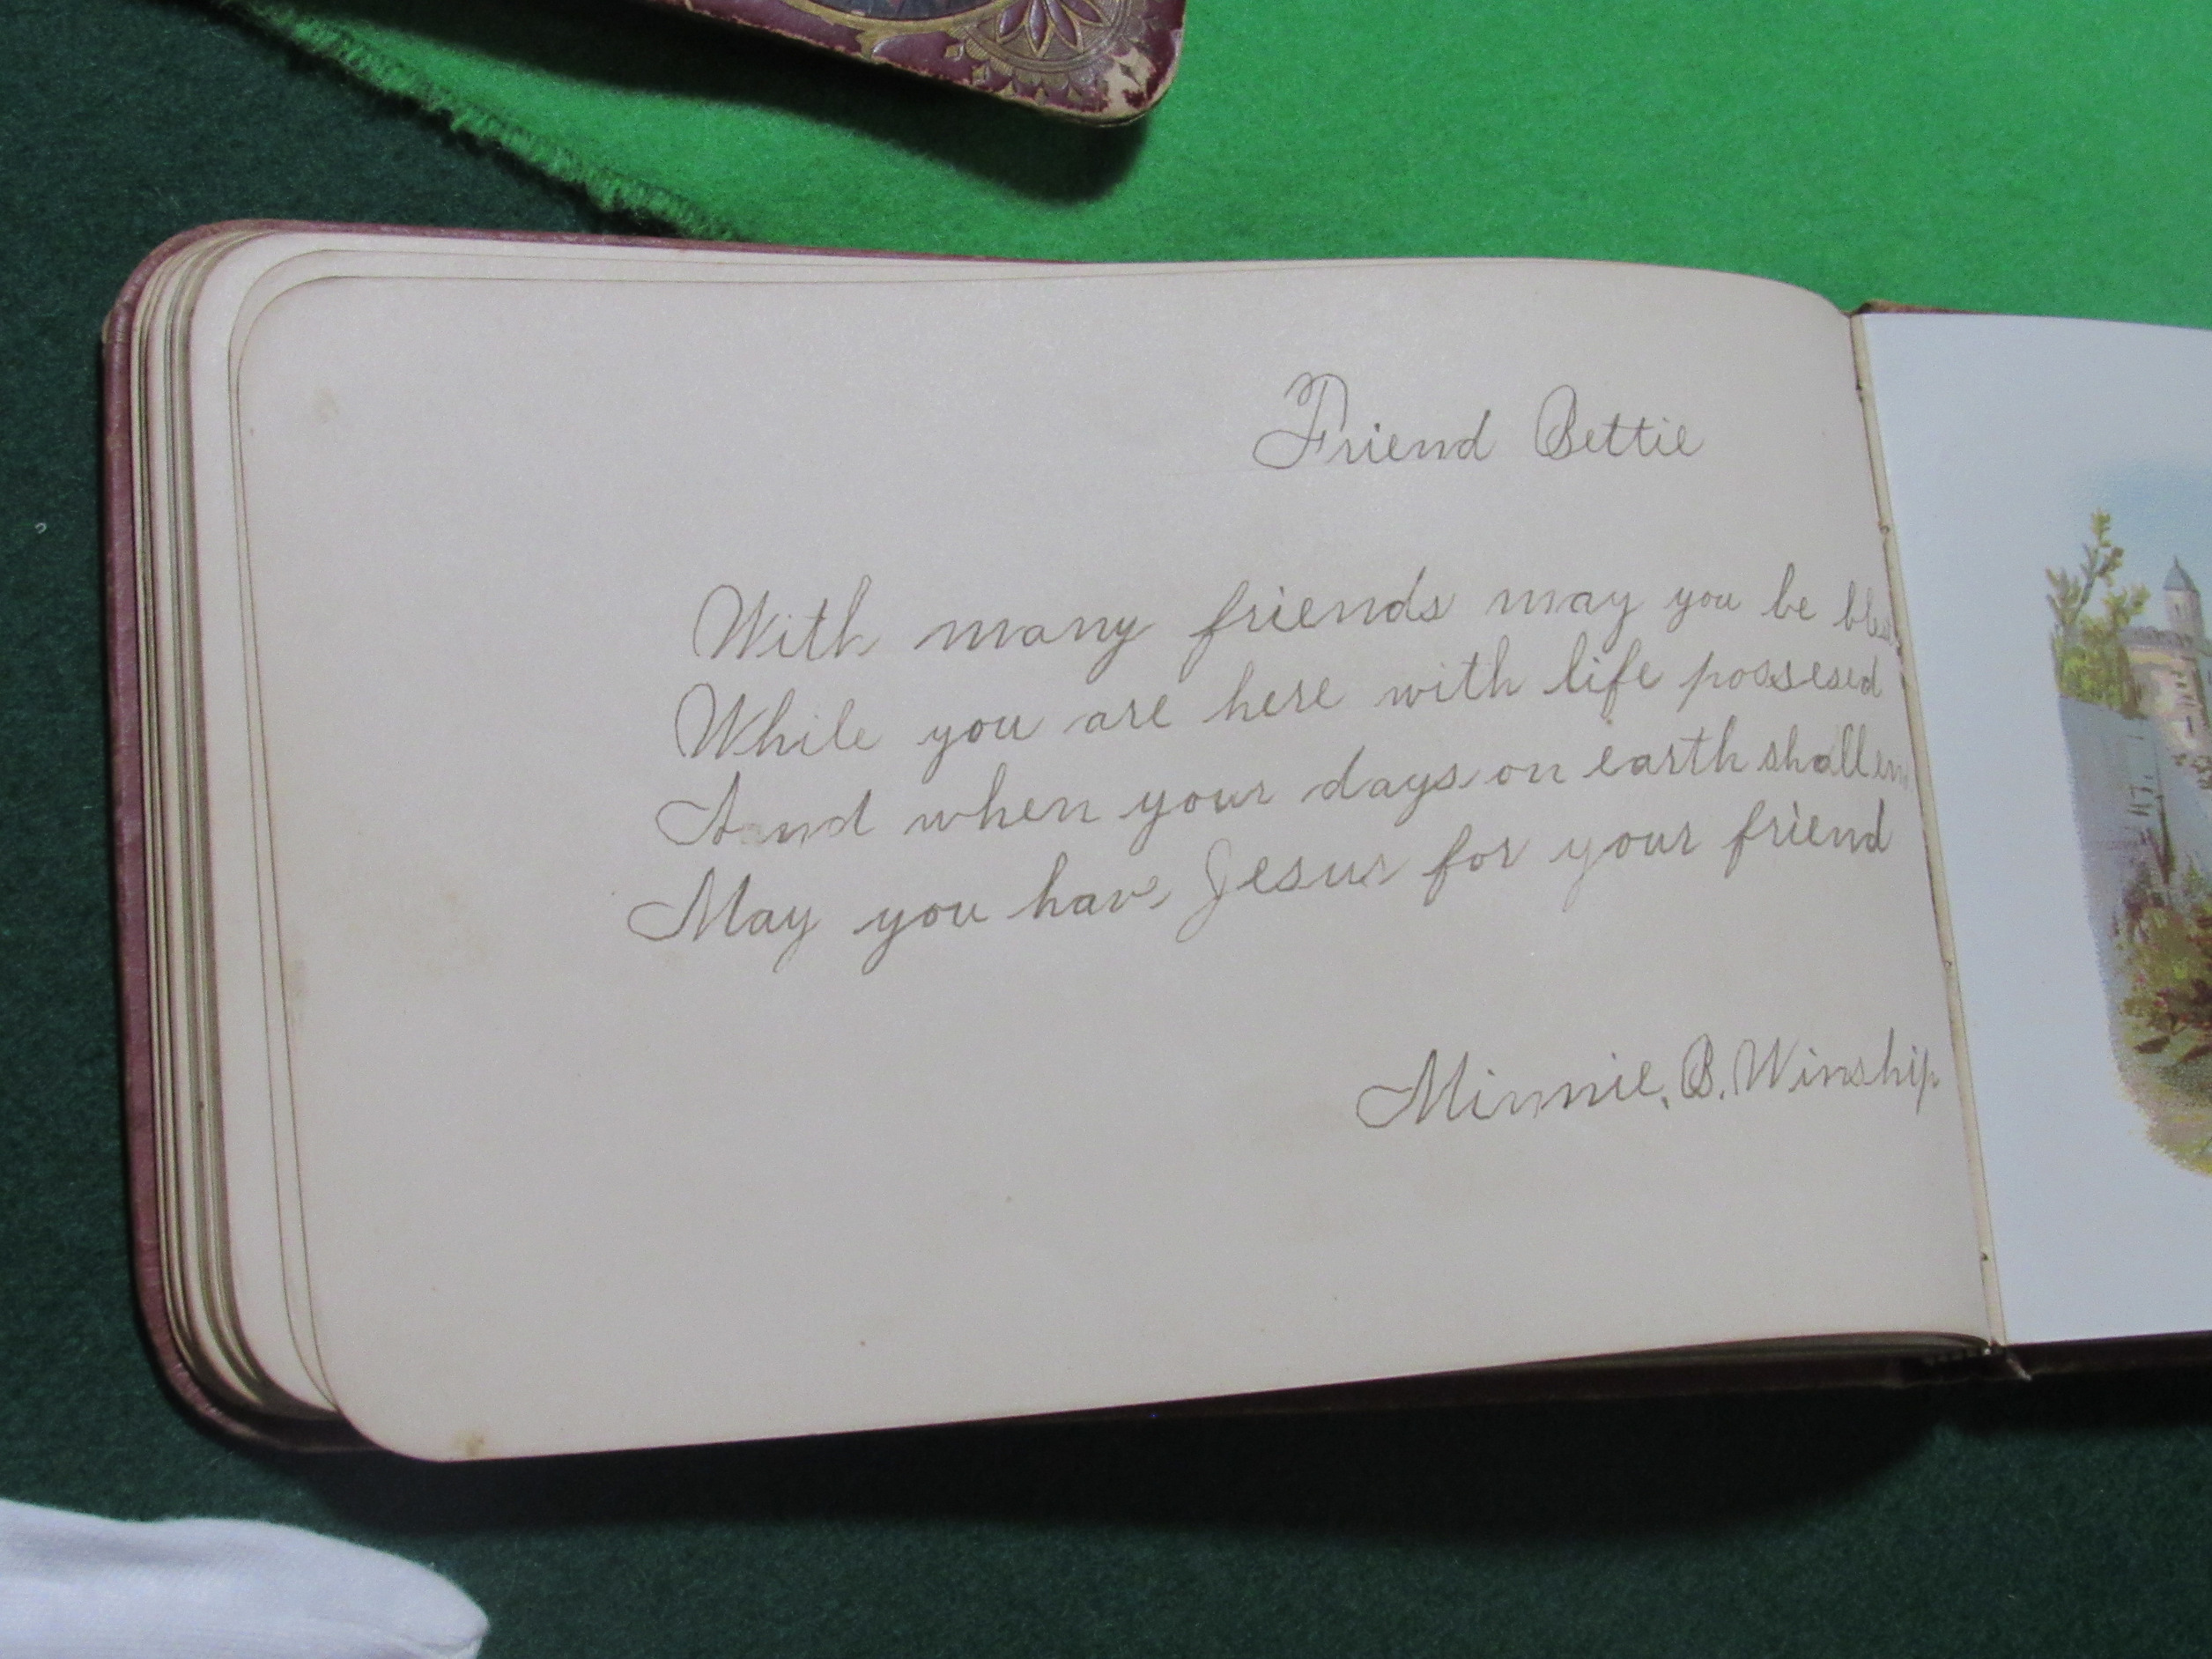 Friend Bettie
With many friends may you be blest
While you are here with life possesed
And when your days on earth shall end
May you have Jesus for your friend
Minnie. B. Winship